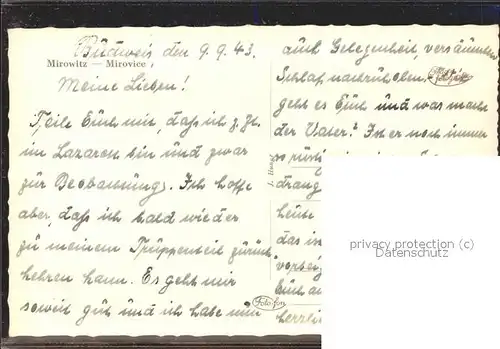 Budweis den 9.9.43.
Mirowitz — Mirovice
Meine Lieben!
Teile Euch mit, daß ich z. Zt.
im Lazarett bin und zwar
zur Beobachtung. Ich hoffe
aber, daß ich bald wieder
zu meinem Truppenteil zurück
kehren kann. Es geht mir
soweit gut und ich habe nun
auch Gelegenheit, versäumten
Schlaf nachzuholen.
geht es Euch und was macht
der Vater? Ist er noch immer
so
drang
heute
das is
Euch a
herzli
privacy protection (c)
Datenschutz
Foto-fon